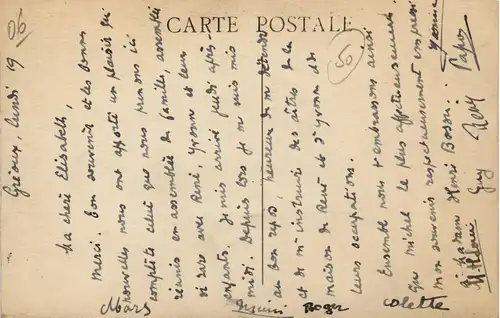 CARTE POSTALE
06
50
Gréoux, lundi 19
Ma chère Elisabeth,
Merci. Ton souvenir et tes bonnes
nouvelles nous ont apporté un plaisir qui
complète celui que nous prenons ici
réunis en assemblée de famille, assemblée
si rare avec René, Yvonne et leurs
enfants. Je suis arrivé jeudi après
midi. Depuis lors je me suis mis
au bon repos, heureux de me détendre
et de m'instruire des aîtres de la
maison de René et d'Yvonne et de
leurs occupations.
Ensemble nous t'embrassons ainsi
que Michel le plus affectueusement.
Mon souvenir respectueusement empressé
à Madame Henri Bosson.
Papoz
Yvonne
Guy
René
Mars
Roger
Colette